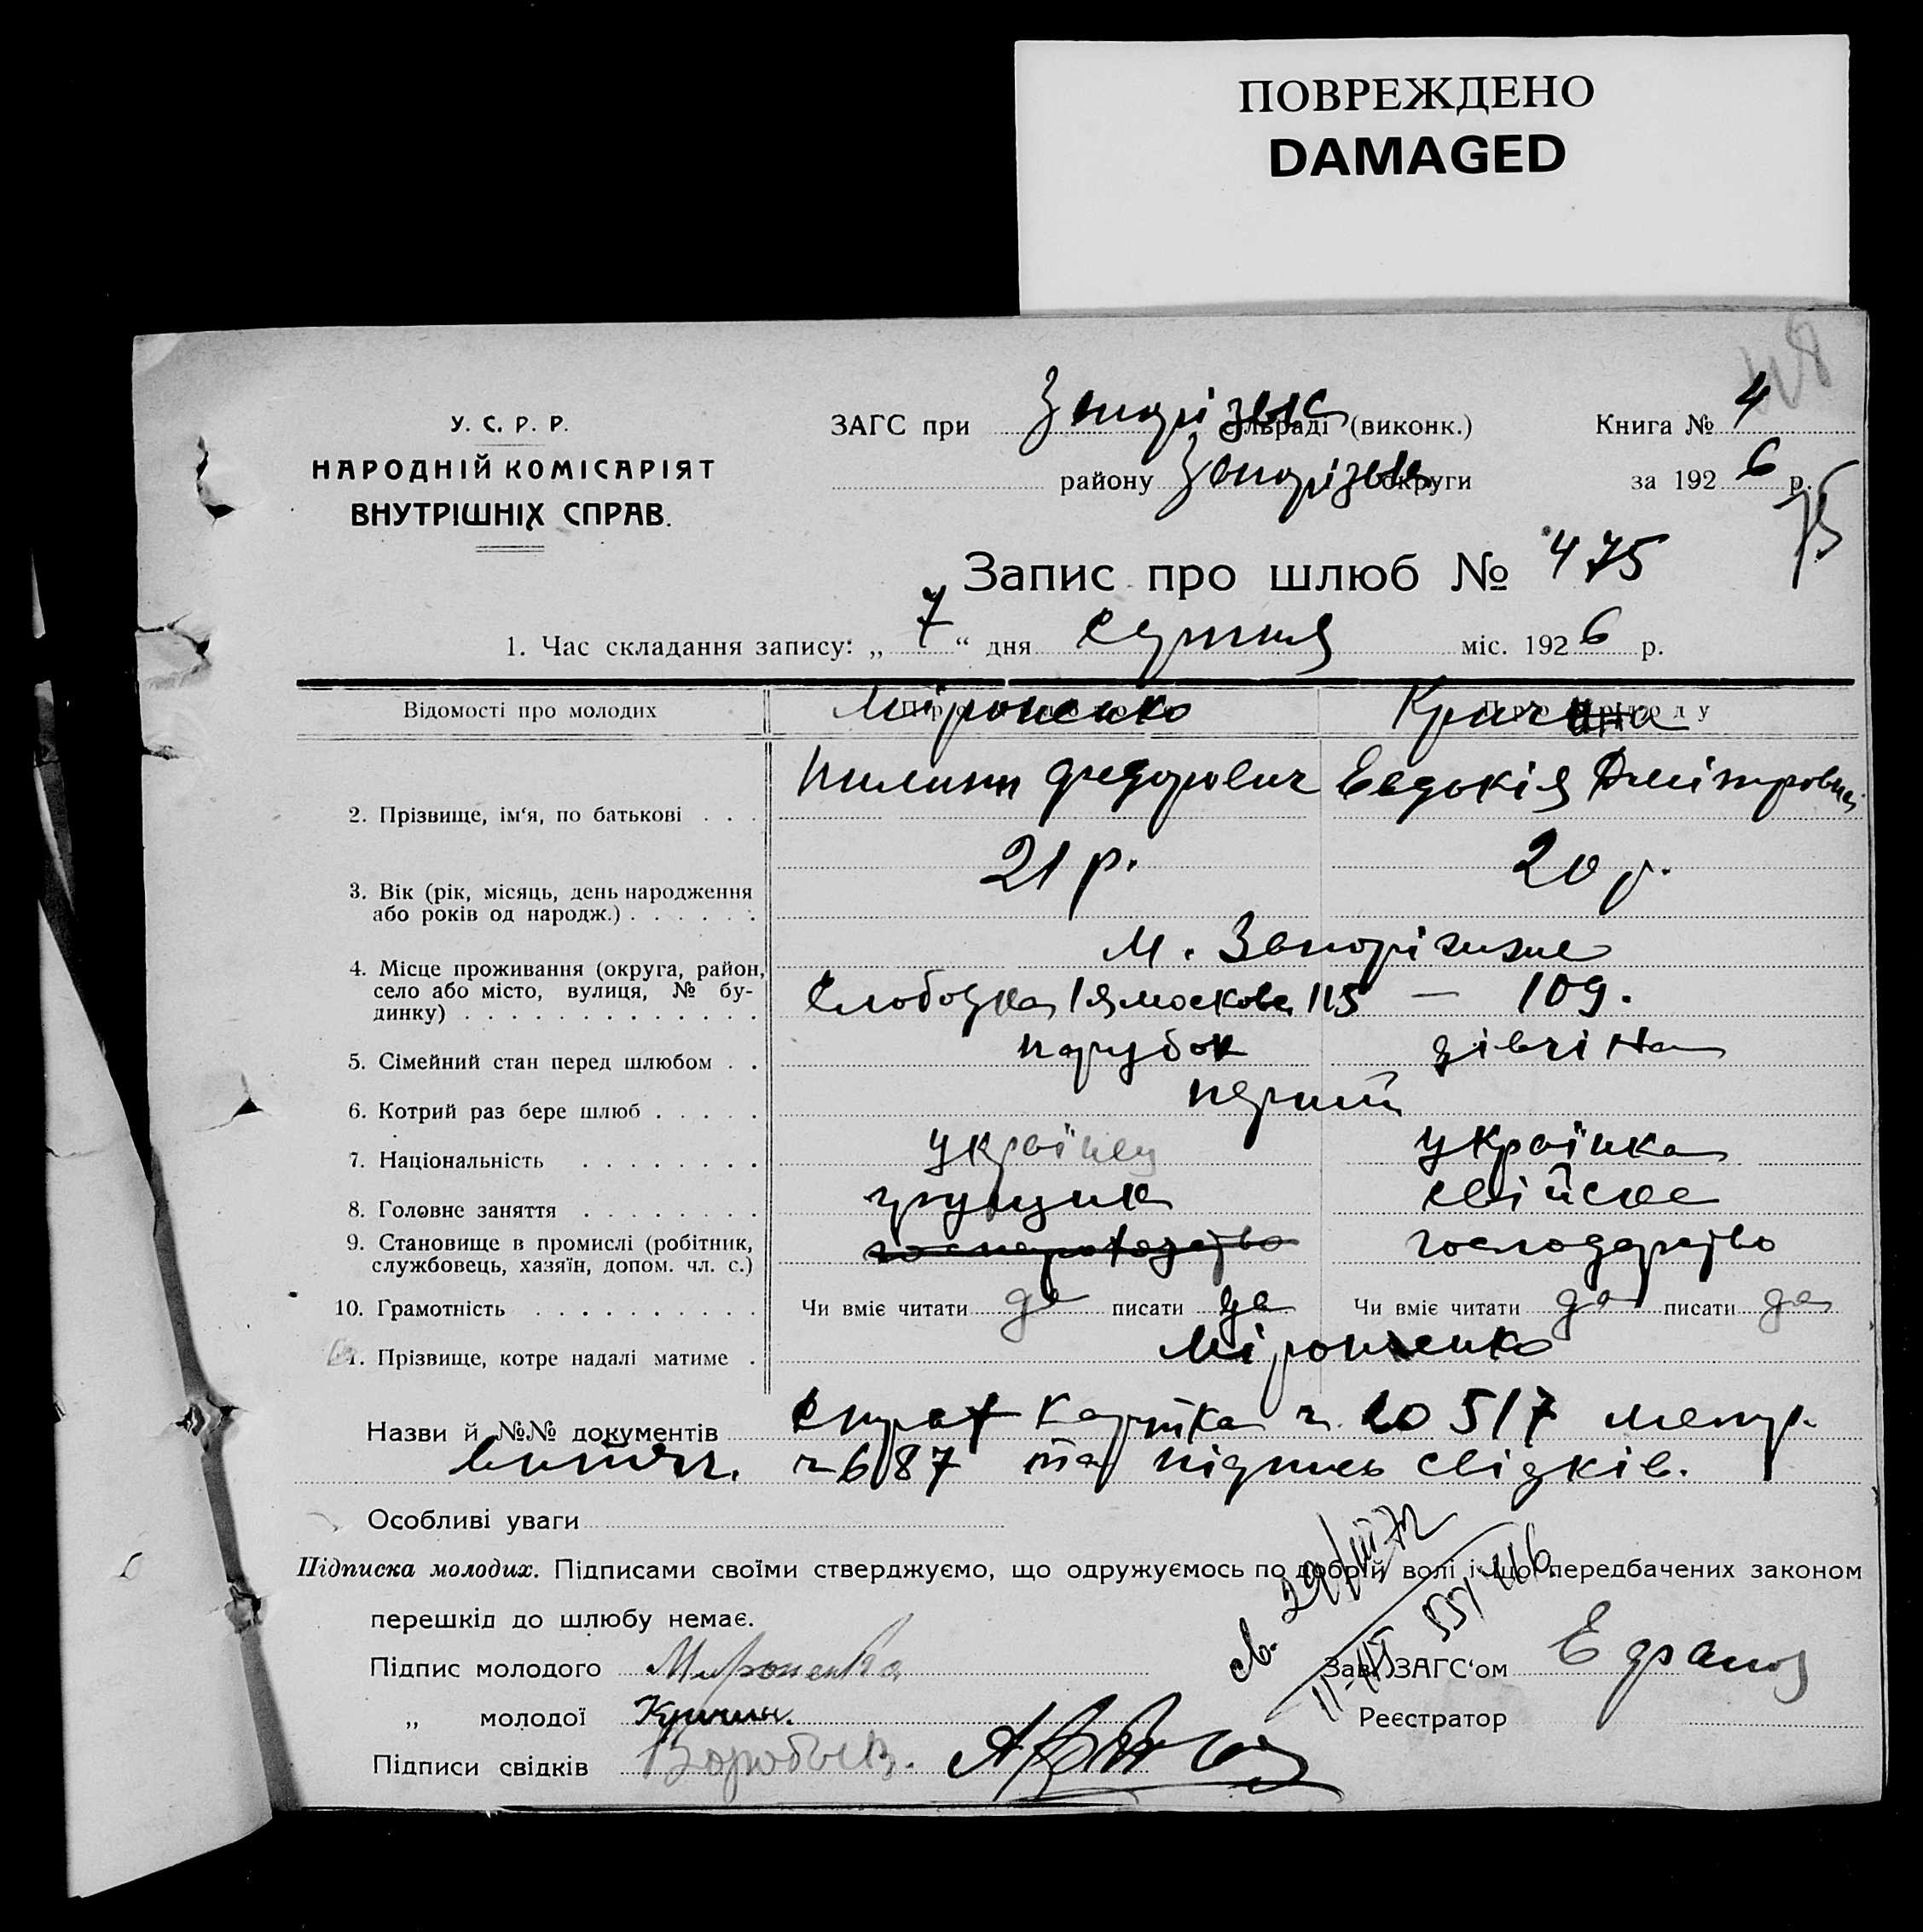 ПОВРЕЖДЕНО
DAMAGED
У. С. Р. Р.
НАРОДНІЙ КОМІСАРІЯТ
ВНУТРІШНІХ СПРАВ.
ЗАГС при Запорізьк сільраді (виконк.)
району Запорізьк округи
Книга № 4
за 1926 р.
75
Запис про шлюб № 475
1. Час складання запису: „7“ дня серпня міс. 1926 р.
Відомості про молодих Міроненко
2. Прізвище, ім‘я, по батькові . . . Пилип Федорович Евдокія Дмітровна
3. Вік (рік, місяць, день народження або років од народж.) . . . . . . 21 р. 20 р.
м. Запоріжже
4. Місце проживання (округа, район, село або місто, вулиця, № будинку) . . . . . . . . . . . . . Слободка 1я москов 115 — 109.
5. Сімейний стан перед шлюбом . . парубок дівчіна
6. Котрий раз бере шлюб . . . . . перший
7. Національність . . . . . . . . українец українка
8. Головне заняття . . . . . . . . свійске
9. Становище в промислі (робітник, службовець, хазяїн, допом. чл. с.) господарство
10. Грамотність . . . . . . . . . . Чи вміє читати да писати да Чи вміє читати да писати да
11. Прізвище, котре надалі матиме . Міроненко
Назви й №№ документів Справ картка ч. 20517 метр.
витяг. ч 687 та підпись свідків.
Особливі уваги
Підписка молодих. Підписами своїми стверджуємо, що одружуємось по добрій волі і що передбачених законом
перешкід до шлюбу немає.
св. 29/III 72
Підпис молодого Мироненко
Зав. ЗАГС‘ом
„ молодої Кричин.
Реєстратор
Підписи свідків Воробьев.